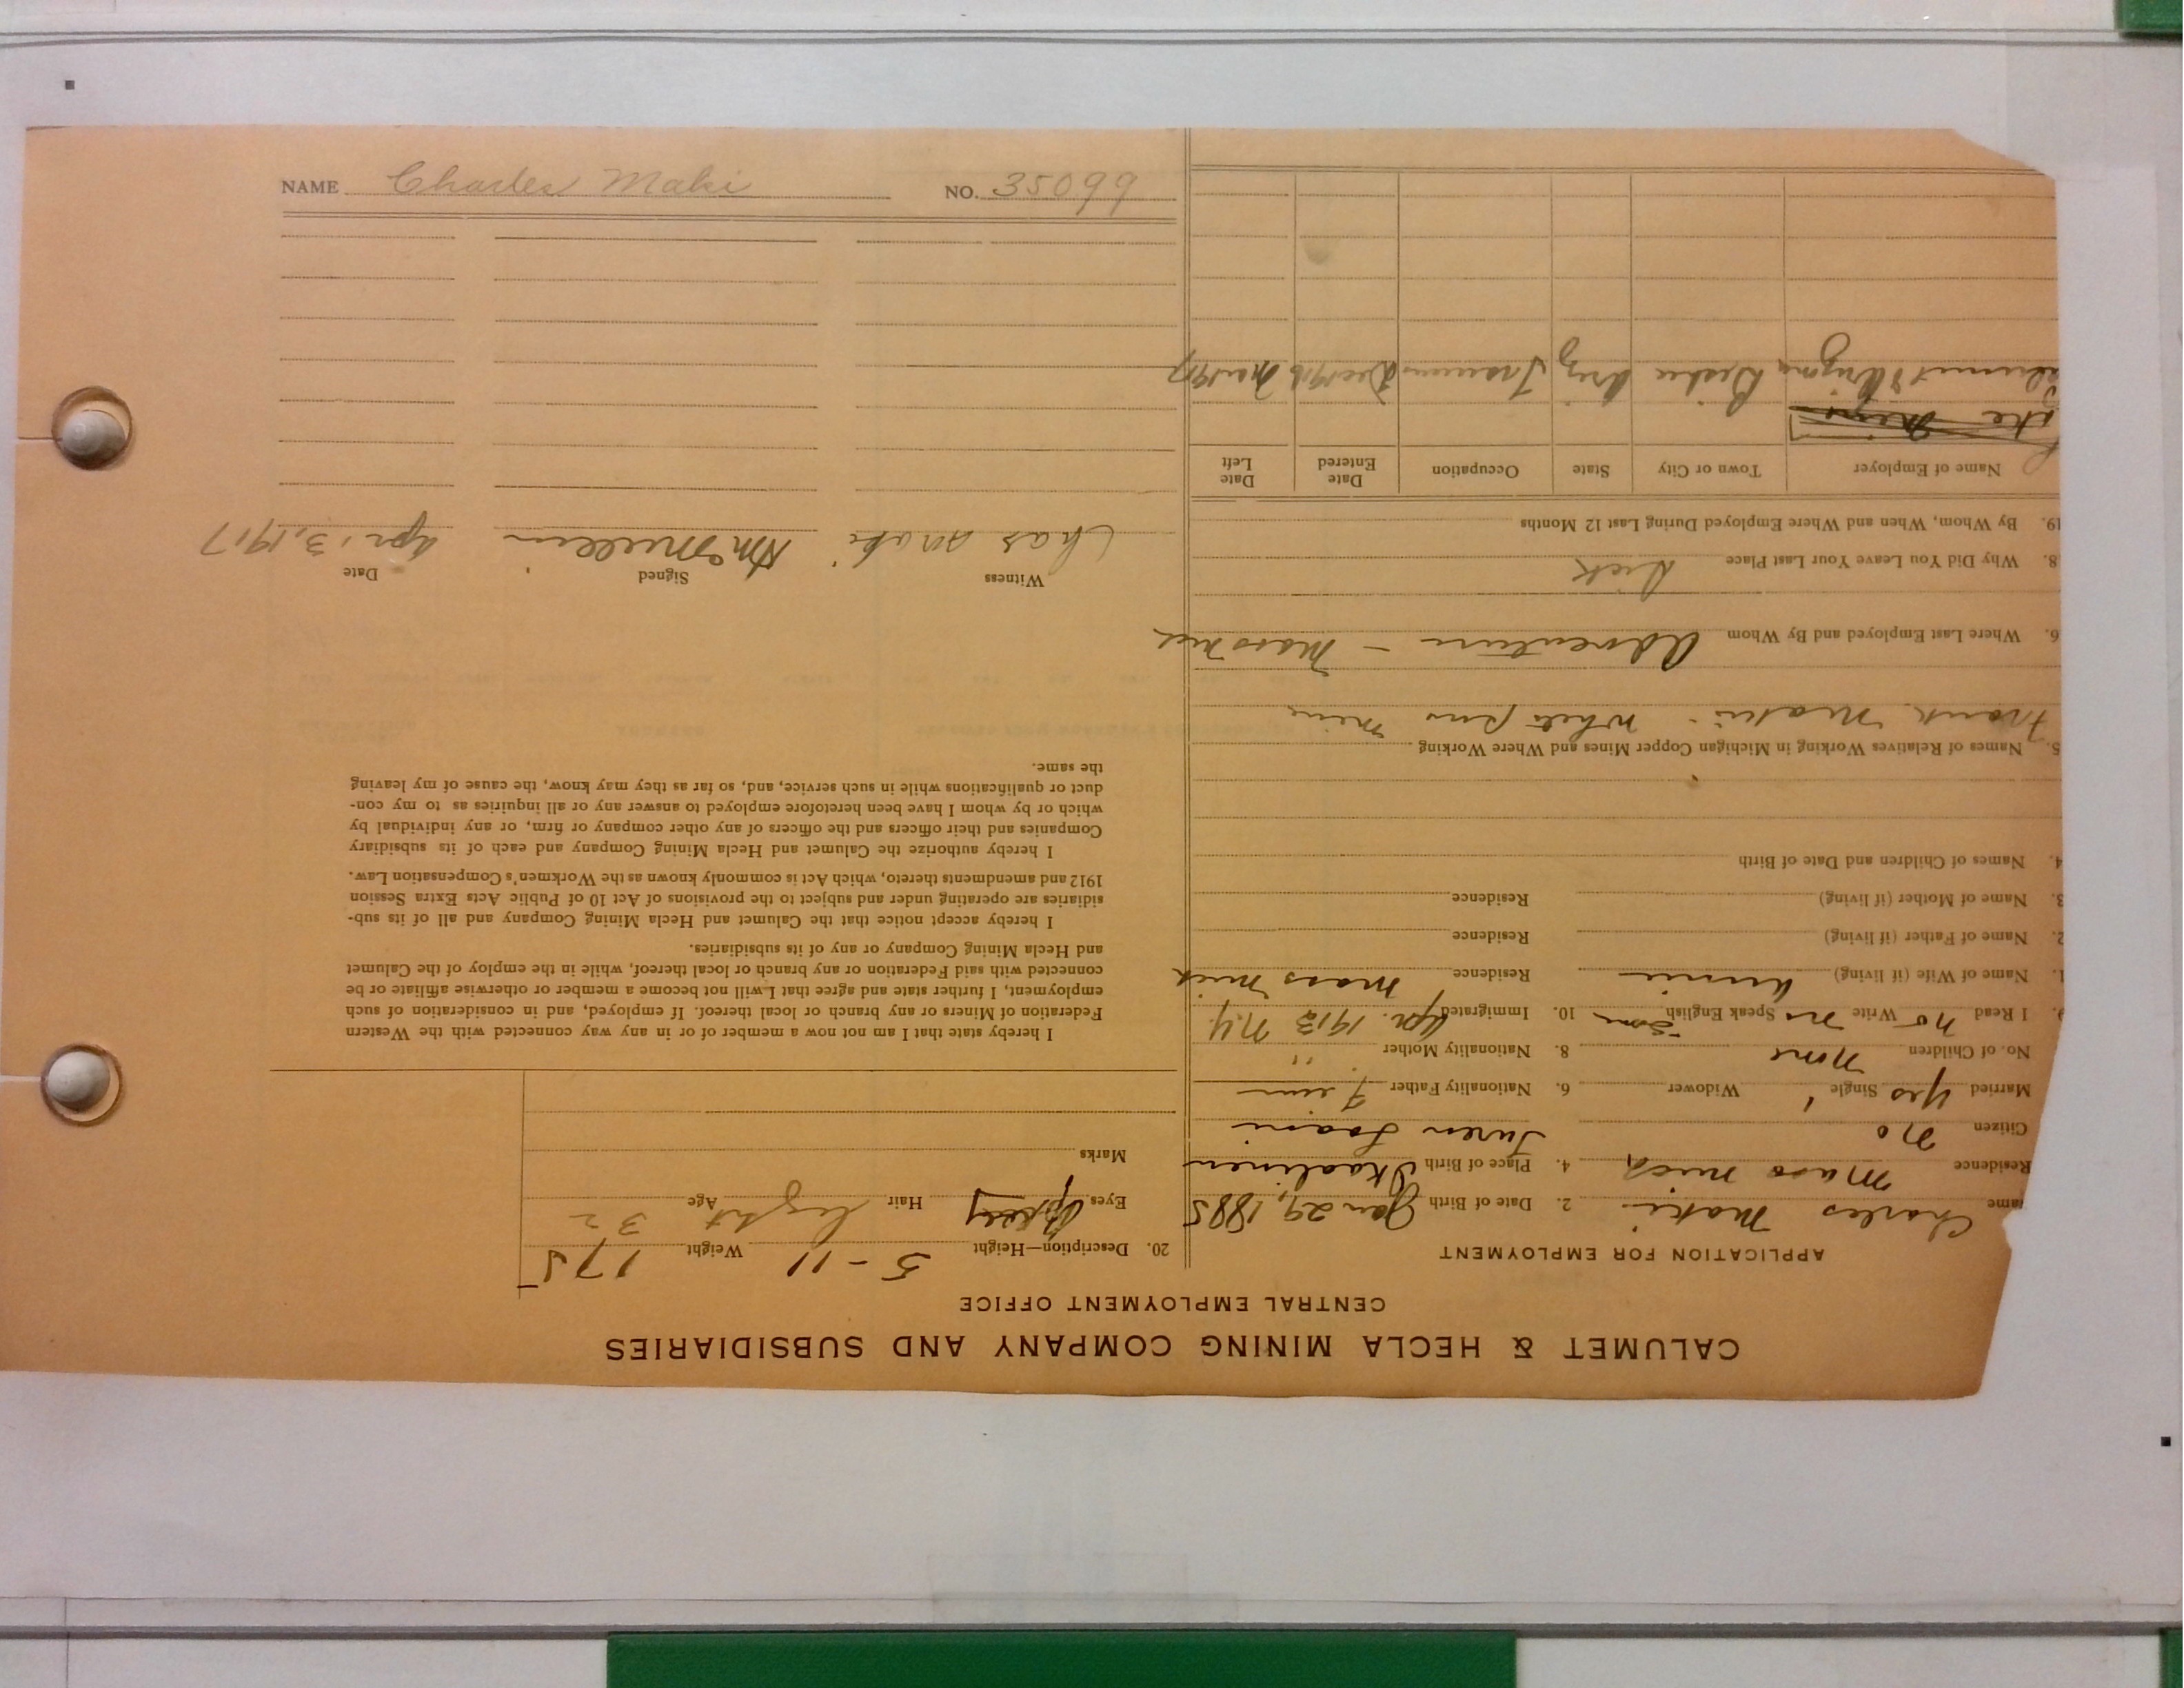 NAME Charles Maki NO. 35099
CALUMET & HECLA MINING COMPANY AND SUBSIDIARIES
CENTRAL EMPLOYMENT OFFICE
APPLICATION FOR EMPLOYMENT
ame Charles Maki 2. Date of Birth Jan 29, 1885
Residence Mass Mich 4. Place of Birth
Citizen no
Married Yes Single Widower 6. Nationality Father Finn
No. of Children none 8. Nationality Mother "
9. I Read no Write no Speak English Some 10. Immigrated Apr. 1913 N.Y
1. Name of Wife (if living) Annie Residence Mass Mich
2. Name of Father (if living) Residence
3. Name of Mother (if living) Residence
4. Names of Children and Date of Birth
5. Names of Relatives Working in Michigan Copper Mines and Where Working
Frank Maki - White Pine mine
6. Where Last Employed and By Whom Adventure - Mass Mich
8. Why Did You Leave Your Last Place Sick
19. By Whom, When and Where Employed During Last 12 Months
Name of Employer Town or City State Occupation Date Entered Date Left
Calumet & Arizona Bisbee Ariz Trammer Dec 1916 Mar 1917
20. Description—Height 5-11 Weight 175
Eyes Hair light Age 32
Marks
I hereby state that I am not now a member of or in any way connected with the Western
Federation of Miners or any branch or local thereof. If employed, and in consideration of such
employment, I further state and agree that I will not become a member or otherwise affiliate or be
connected with said Federation or any branch or local thereof, while in the employ of the Calumet
and Hecla Mining Company or any of its subsidiaries.
I hereby accept notice that the Calumet and Hecla Mining Company and all of its sub-
sidiaries are operating under and subject to the provisions of Act 10 of Public Acts Extra Session
1912 and amendments thereto, which Act is commonly known as the Workmen's Compensation Law.
I hereby authorize the Calumet and Hecla Mining Company and each of its subsidiary
Companies and their officers and the officers of any other company or firm, or any individual by
which or by whom I have been heretofore employed to answer any or all inquiries as to my con-
duct or qualifications while in such service, and, so far as they may know, the cause of my leaving
the same.
Witness Signed Date
Chas Maki Apr. 13, 1917